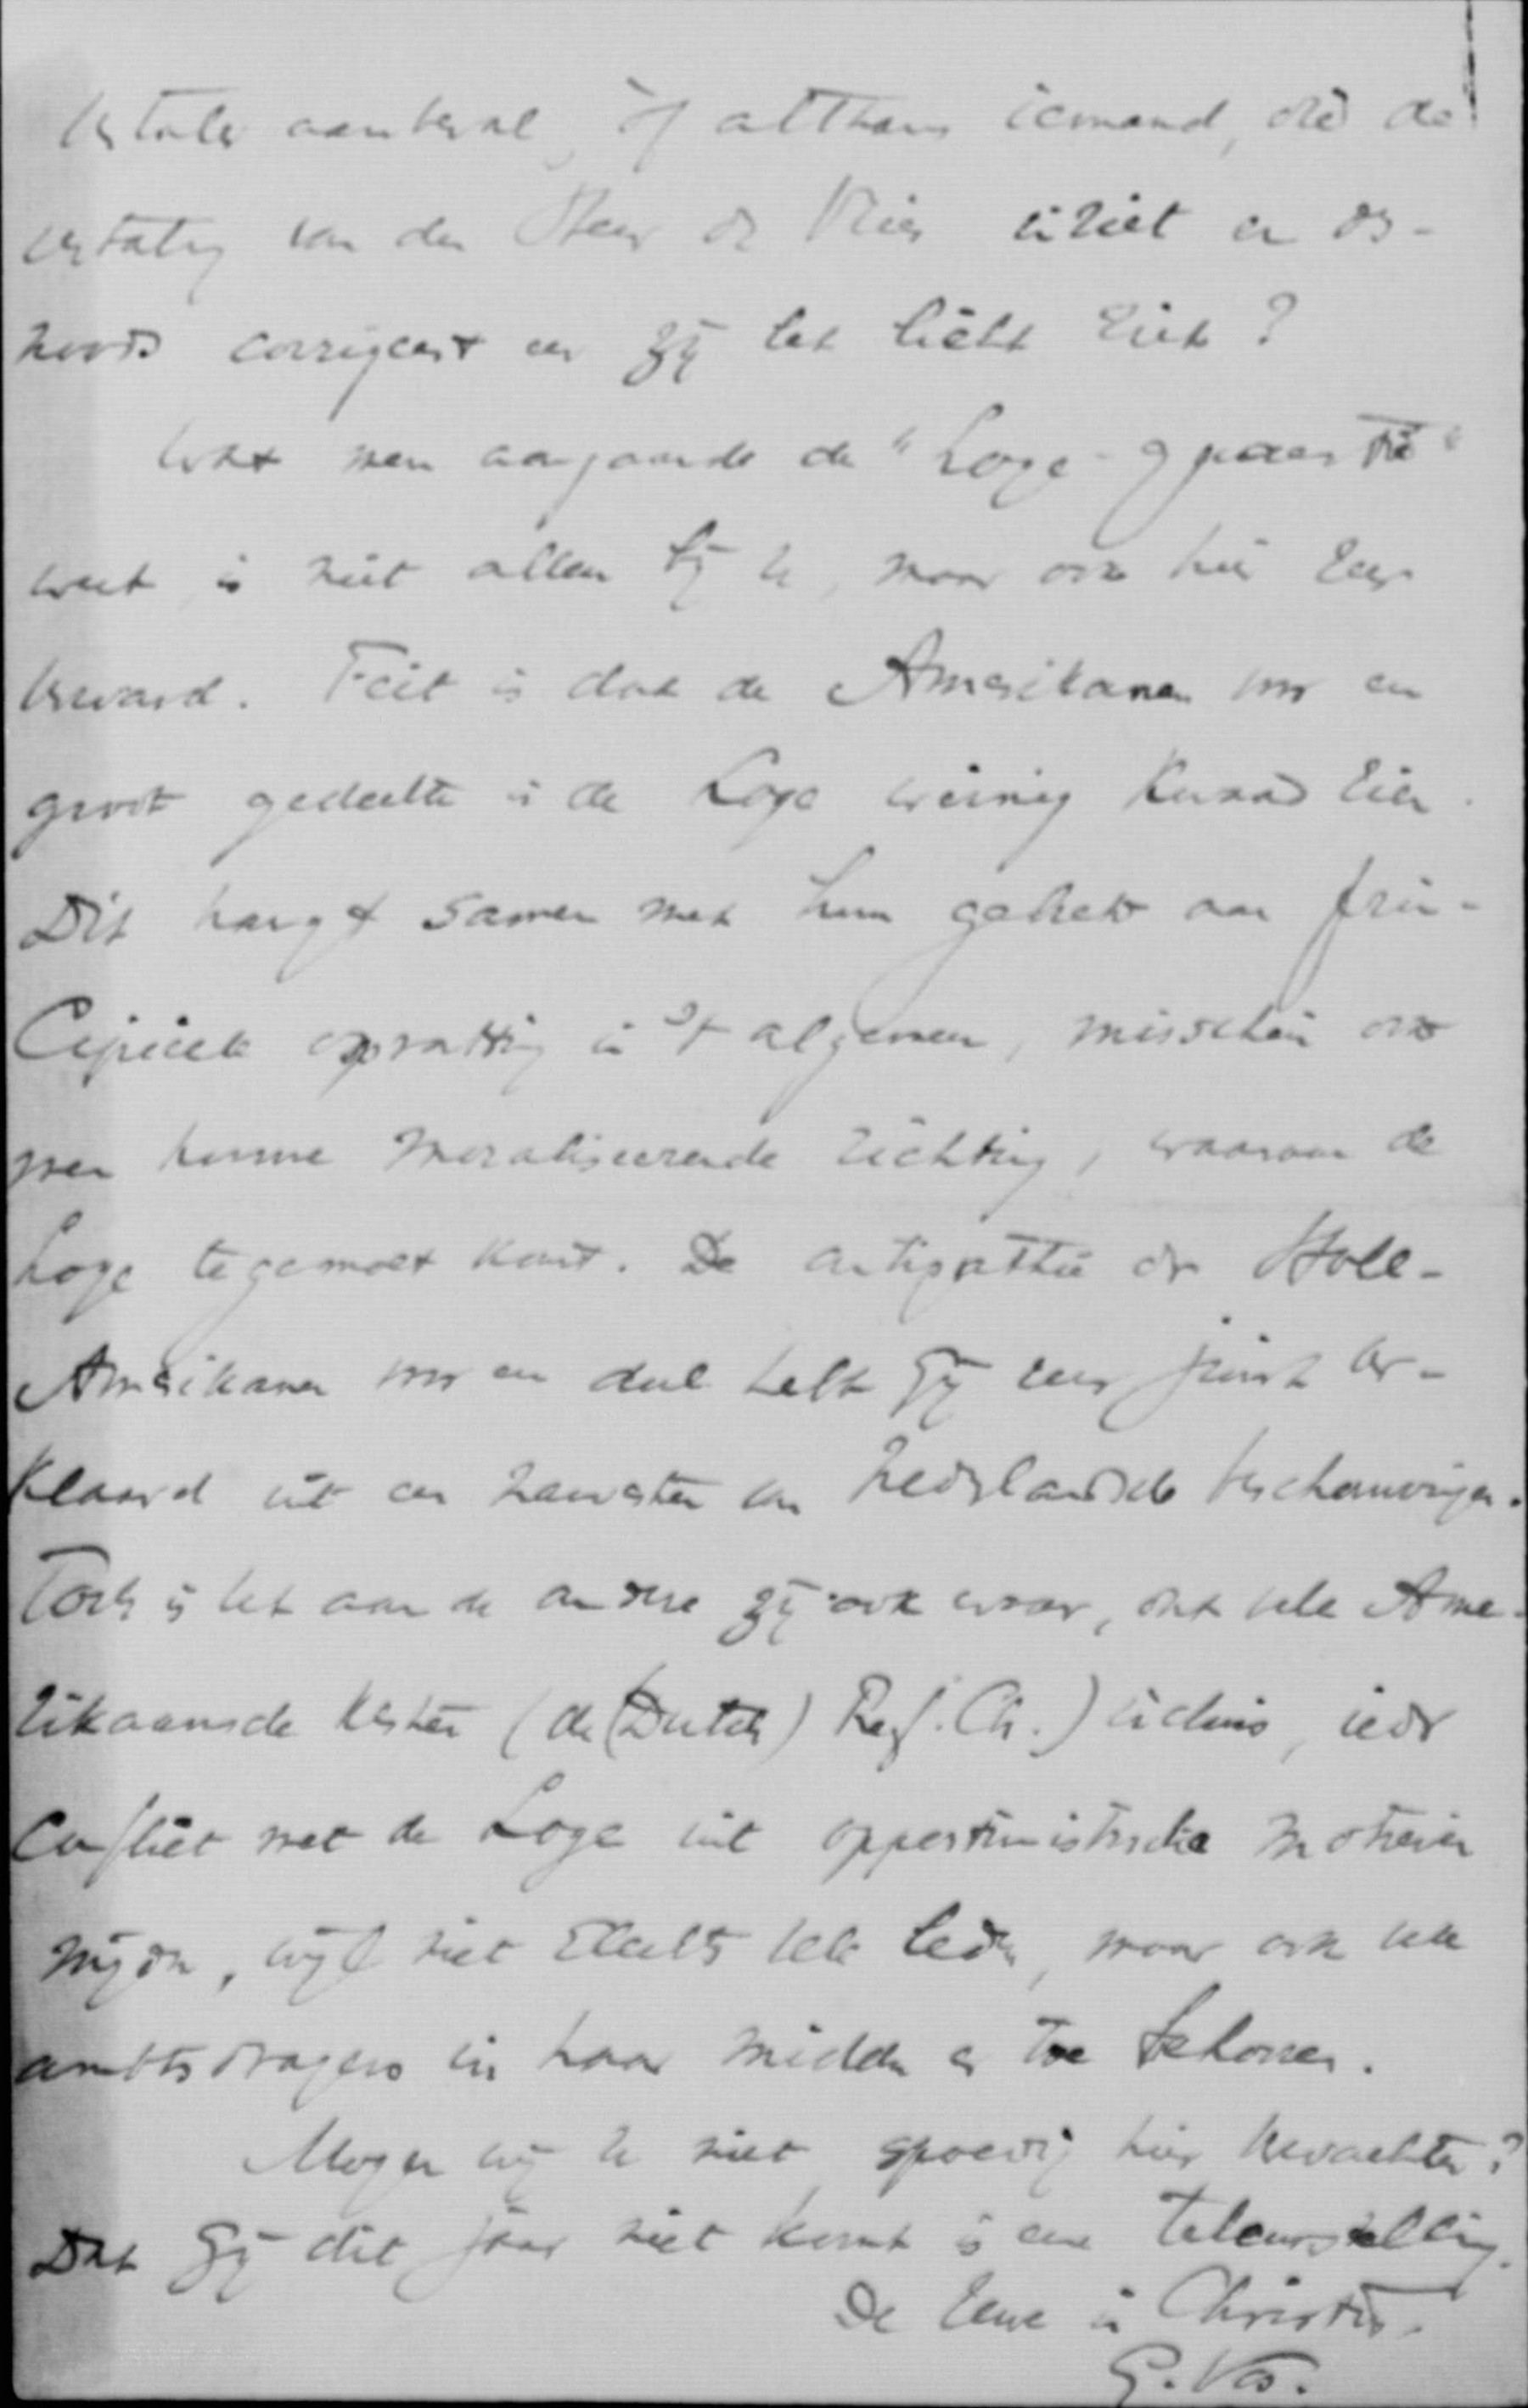 vertaler aanbeval, òf althans iemand, die de
vertaling van den Heer de Vries inziet en des-
noods corrigeert eer zij het licht ziet?
Wat men aangaande de "Loge-quaestie"
weet is niet alleen bij U, maar ook hier zeer
verward. Feit is dat de Amerikanen voor een
groot gedeelte in de Loge weinig kwaad zien.
Dit hangt samen met hun gebrek aan prin-
cipieele opvatting in 't algemeen, misschien ook
met hunne moraliseerende richting, waaraan de
Loge tegemoet komt. De antipathie der Holl-
Amerikanen voor een deel hebt Gij zeer juist ver-
klaard uit een nawerken van Nederlandsche beschouwingen.
Toch is het aan de andere zij ook waar, dat vele Ame-
rikaansche kerken (de (Dutch) Ref. Ch.) incluis, ieder
conflict met de Loge uit opportunistische motieven
mijden, wijl niet slechts vele leden, maar ook vele
ambtsdragers in haar midden er toe behooren.
Mogen wij U niet spoedig hier verwachten?
Dat Gij dit jaar niet komt is een teleurstelling.
De Uwe in Christus.
G. Vos.